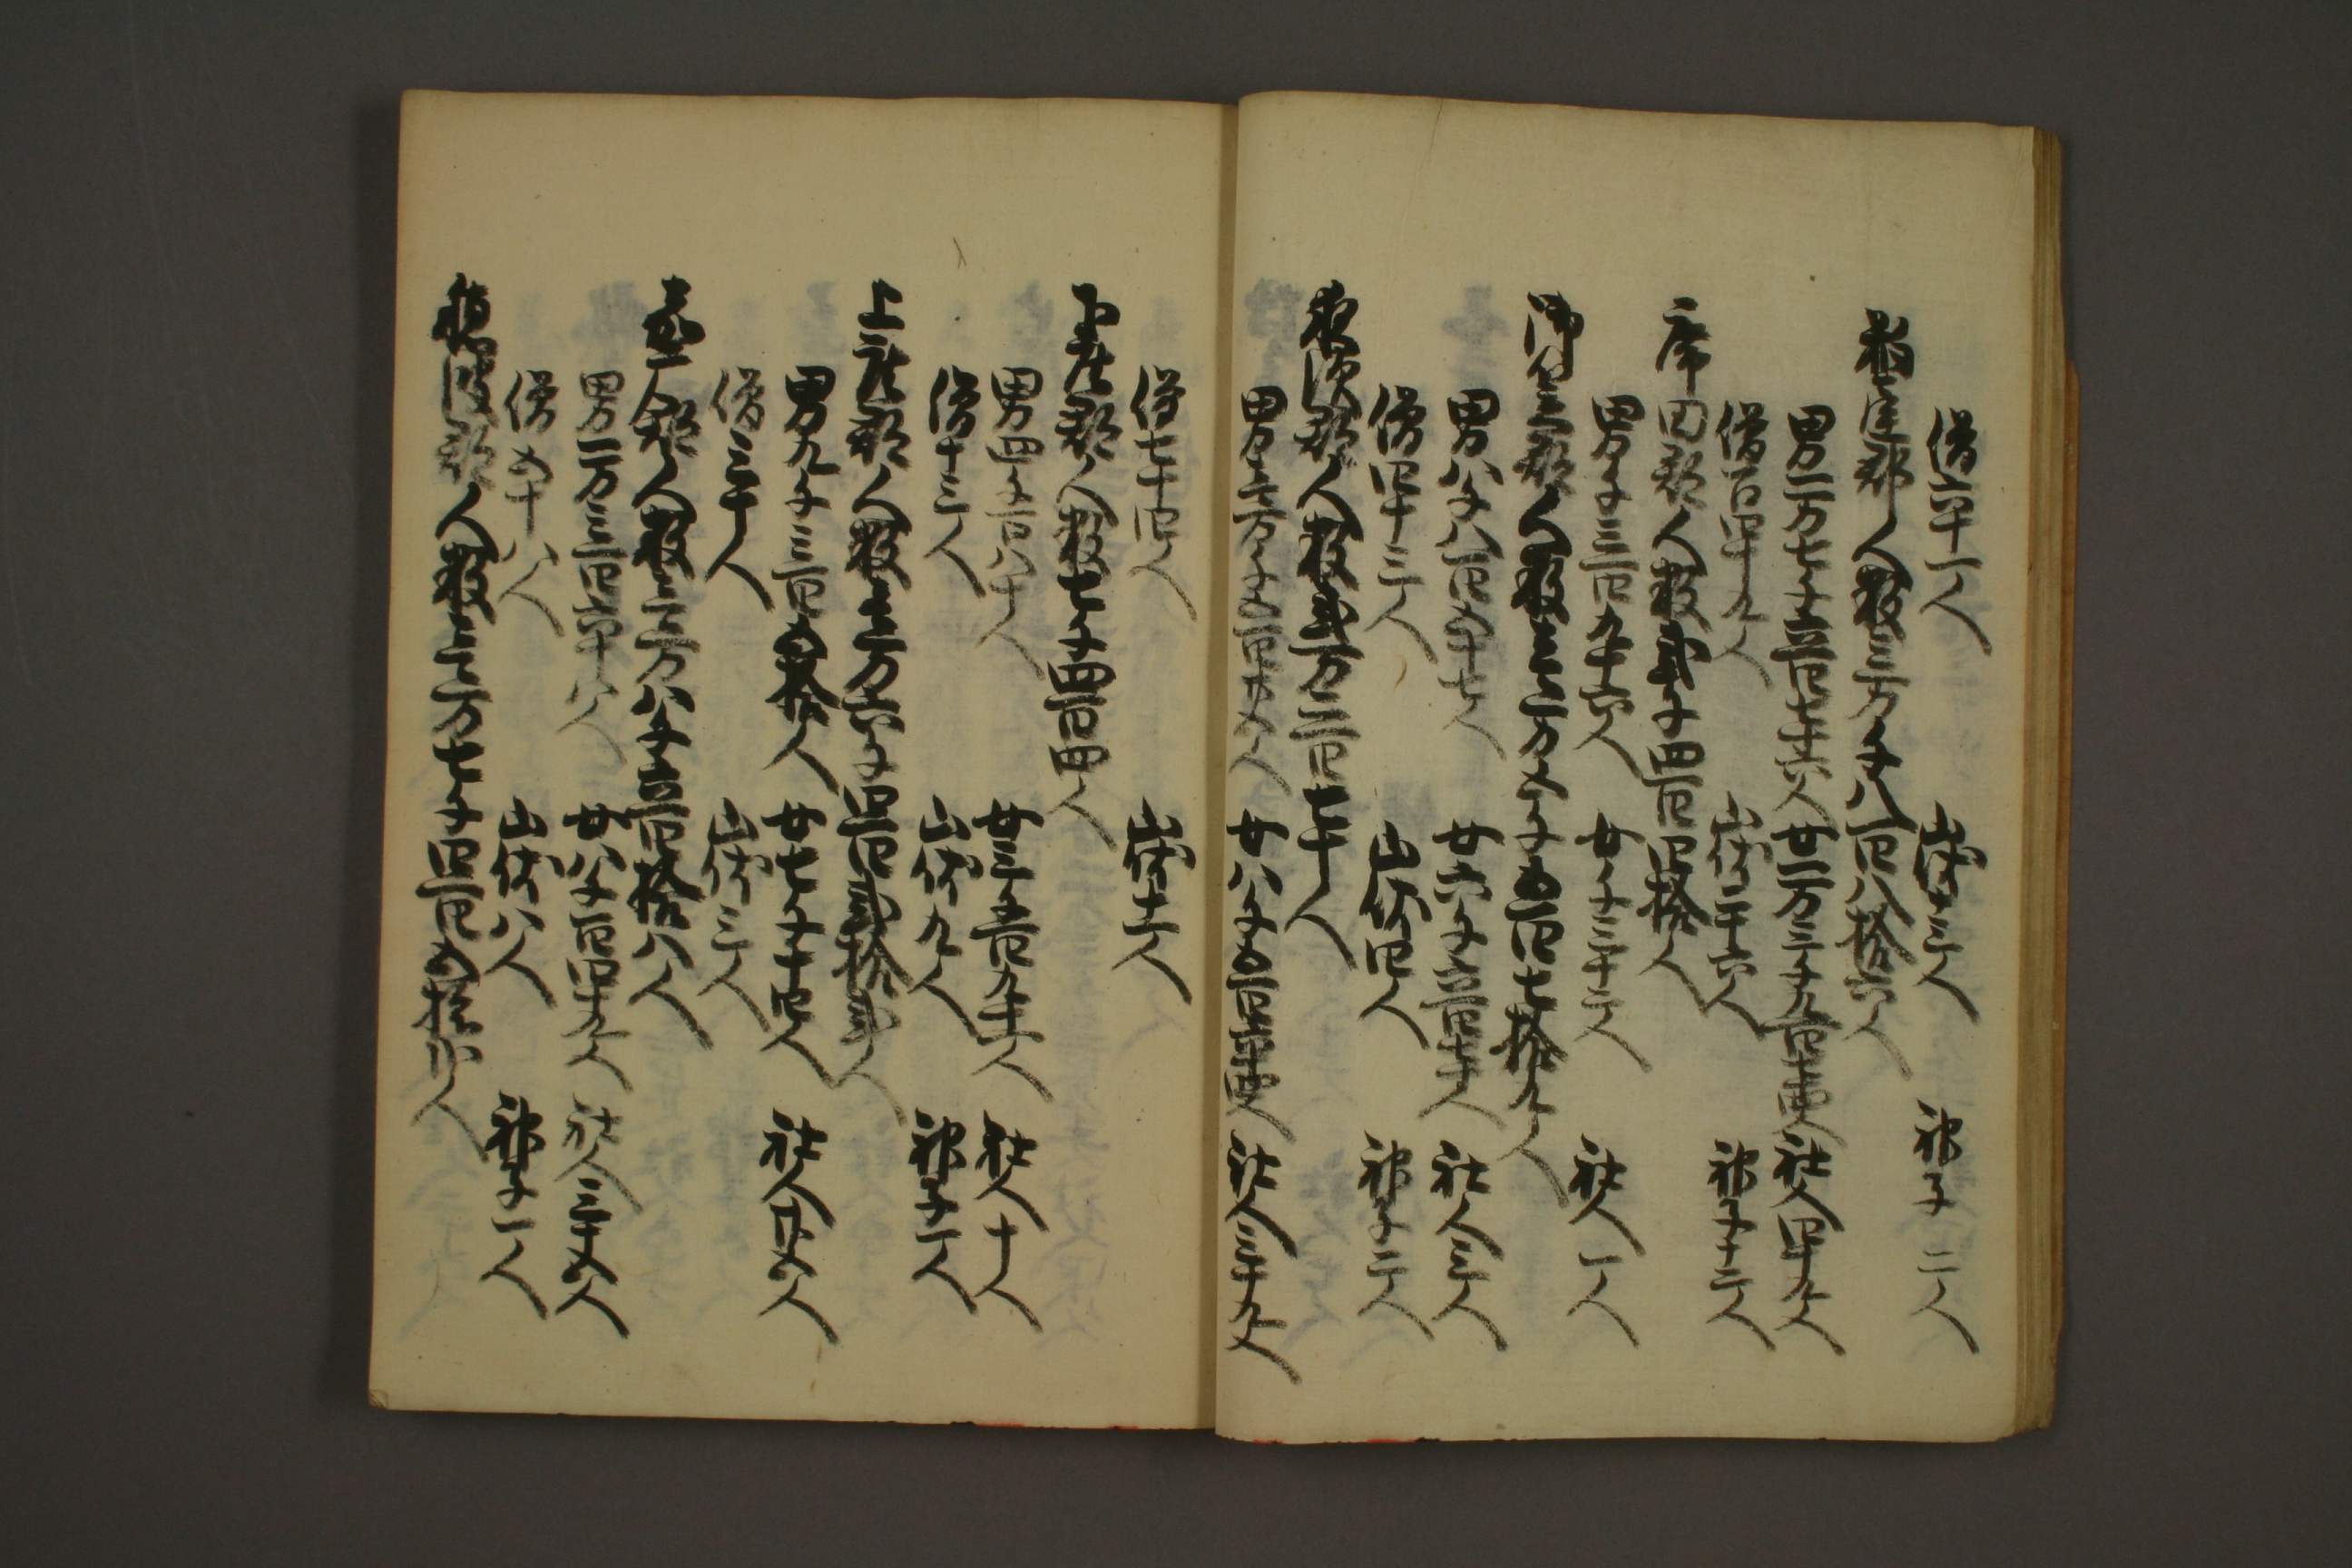 僧六十一人　山伏十三人　神子二人
粕屋郡人数三万千八百八拾六人
男一万七千六百七十六人　女一万三千九百七十四人　社人四十九人
僧百四十九人　山伏二十六人　神子十二人
席田郡人数弐千四百四拾人
男千三百九十六人　女千三十二人　社人一人
御笠郡人数壱万五千五百七拾九人
男八千八百五十七人　女六千六百七十人　社人三人
僧四十三人　山伏四人　神子二人
夜須郡人数弐万二百七十人
男壱万千五百廿五人　女八千五百六十四人　社人三十九人
僧七十四人　山伏十一人
下座郡人数七千四百四人
男四千百八十人　女三千百九十一人　社人十人
僧十三人　山伏九人　神子一人
上座郡人数壱万六千四百弐拾弐人
男九千三百五拾人　女七千十四人　社人廿五人
僧三十人　山伏三人
嘉麻郡人数壱万八千六百拾八人
男一万三百六十八人　女八千百四十九人　社人三十五人
僧五十八人　山伏八人　神子一人
穂波郡人数壱万七千四百五拾八人